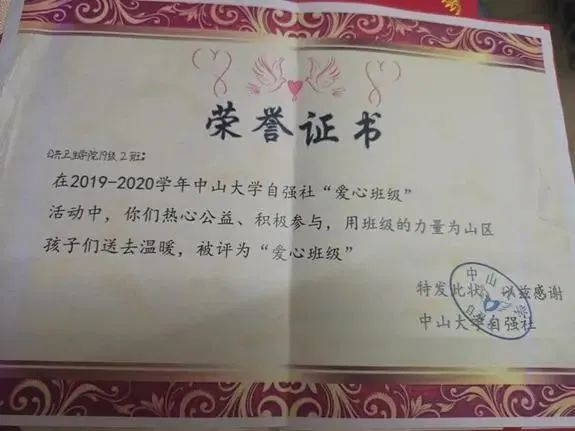 荣誉证书
公共卫生学院19级2班:
在2019-2020学年中山大学自强社“爱心班级”
活动中，你们热心公益、积极参与，用班级的力量为山区
孩子们送去温暖，被评为“爱心班级”
特发此状 以兹感谢
中山大学自强社